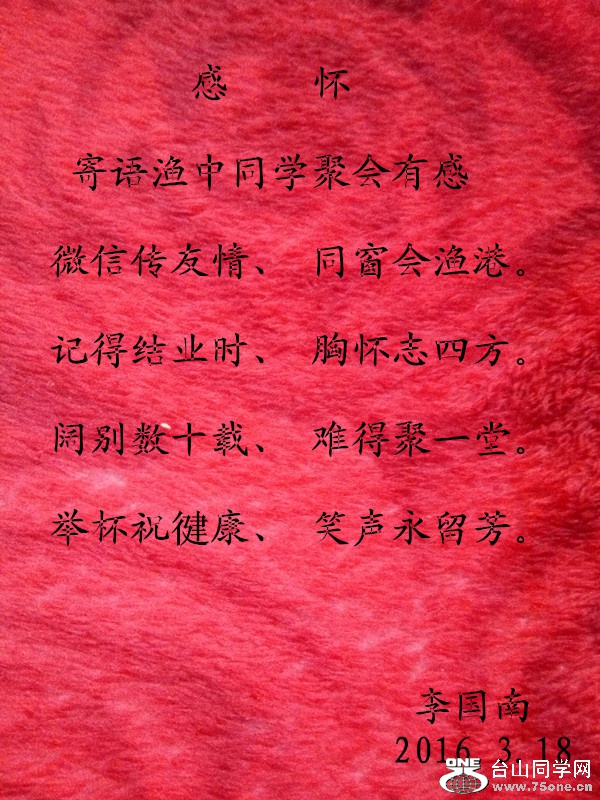 感 怀
寄语渔中同学聚会有感
微信传友情、 同窗会渔港。
记得结业时、 胸怀志四方。
阔别数十载、 难得聚一堂。
举杯祝健康、 笑声永留芳。
李国南
2016.3.18
ONE 台山同学网
www.75one.cn